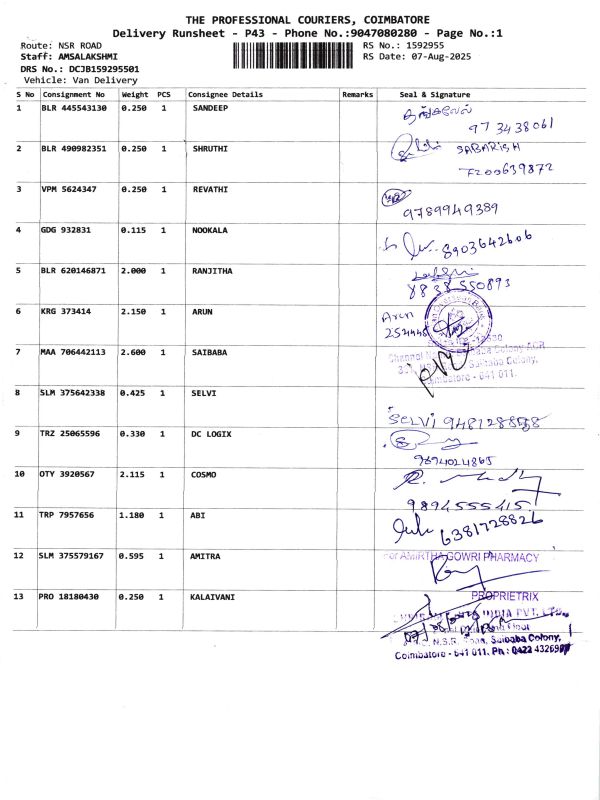 THE PROFESSIONAL COURIERS, COIMBATORE
Delivery Runsheet - P43 - Phone No.:9047080280 - Page No.:1
Route: NSR ROAD RS No.: 1592955
Staff: AMSALAKSHMI RS Date: 07-Aug-2025
DRS No.: DCJB159295501
Vehicle: Van Delivery
S No Consignment No Weight PCS Consignee Details Remarks Seal & Signature
1 BLR 445543130 0.250 1 SANDEEP தங்கவேல்
973438061
2 BLR 490982351 0.250 1 SHRUTHI SABARISH
7200639872
3 VPM 5624347 0.250 1 REVATHI
9789949389
4 GDG 932831 0.115 1 NOOKALA 8903642606
5 BLR 620146871 2.000 1 RANJITHA
8838550893
6 KRG 373414 2.150 1 ARUN Arun
7 MAA 706442113 2.600 1 SAIBABA Saibaba Colony,
Coimbatore - 641 011.
8 SLM 375642338 0.425 1 SELVI
SELVI
9 TRZ 25065596 0.330 1 DC LOGIX
9894024865
10 OTY 3920567 2.115 1 COSMO
9894555415
11 TRP 7957656 1.180 1 ABI 6381728826
12 SLM 375579167 0.595 1 AMITRA For AMIRTHA GOWRI PHARMACY
PROPRIETRIX
13 PRO 18180430 0.250 1 KALAIVANI
INDIA PVT. LTD.,
N.S.R. Road, Saibaba Colony,
Coimbatore - 641 011. Ph : 0422 432690